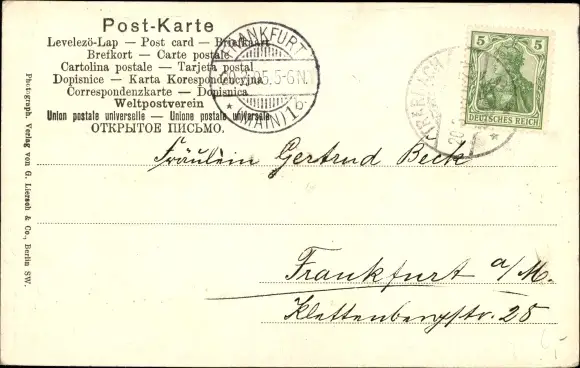 Post-Karte
Levelezö-Lap — Post card — Briefkaart
Brefkort — Carte postale
Cartolina postale — Tarjeta postal
Dopisnice — Karta Korespondencyjna
Correspondenzkarte — Dopisnica
Weltpostverein
Union postale universelle — Unione postale universale
ОТКРЫТОЕ ПИСЬМО.
FRANKFURT
5-6N.
(MAIN)
5 5
DEUTSCHES REICH
Fräulein Gertrud Beck
Frankfurt a/M.
Klettenbergstr. 25
Photograph. Verlag von G. Liersch & Co., Berlin SW.